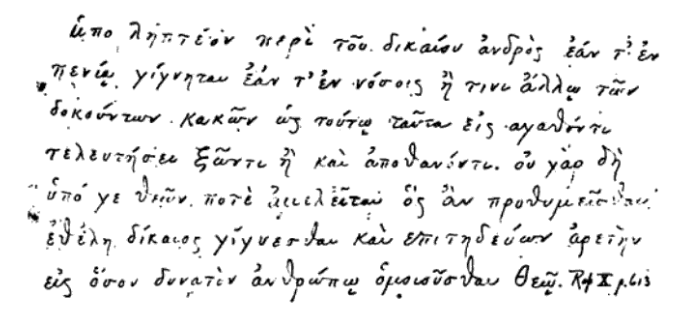 ὑπο ληπτέον περὶ τοῦ δικαίου ἀνδρὸς ἐάν τ' ἐν
πενίᾳ γίγνηται ἐάν τ' ἐν νόσοις ἤ τινι ἄλλῳ τῶν
δοκούντων κακῶν ὡς τούτῳ ταῦτα εἰς ἀγαθόν τι
τελευτήσει ζῶντι ἢ καὶ ἀποθανόντι. οὐ γὰρ δὴ
ὑπό γε θεῶν ποτὲ ἀμελεῖται ὃς ἂν προθυμεῖσθαι
ἐθέλῃ δίκαιος γίγνεσθαι καὶ ἐπιτηδεύων ἀρετὴν
εἰς ὅσον δυνατὸν ἀνθρώπῳ ὁμοιοῦσθαι θεῷ. Rep X p. 613